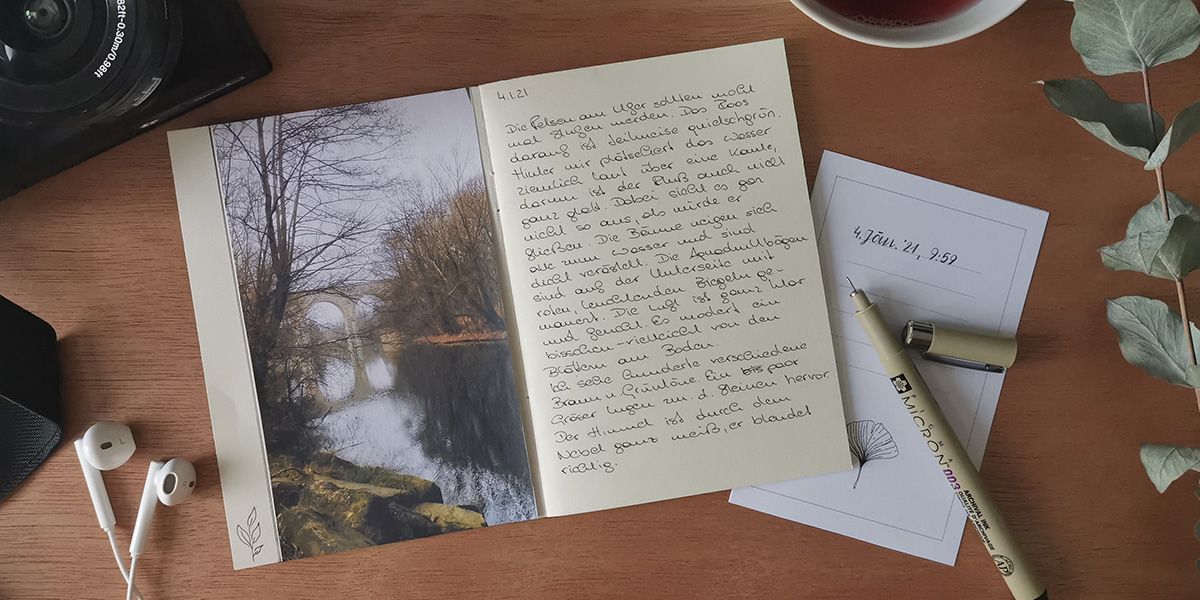 82ft-0.30m/0.98ft
4.1.21
Die Felsen am Ufer sollten wohl
mal Stufen werden. Das Moos
darauf ist teilweise quietschgrün.
Hinter mir plätschert das Wasser
ziemlich laut über eine Kante,
darum ist der Fluß auch nicht
ganz glatt. Dabei sieht es gar
nicht so aus, als würde er
fließen. Die Bäume neigen sich
alle zum Wasser und sind
dicht verästelt. Die Aquäduktbögen
sind auf der Unterseite mit
roten, leuchtenden Ziegeln ge-
mauert. Die Luft ist ganz klar
und feucht. Es modert ein
bisschen – vielleicht von den
Blättern am Boden.
Ich sehe hunderte verschiedene
Braun u. Grüntöne. Ein paar
Gräser lugen zw. d. Steinen hervor.
Der Himmel ist durch den
Nebel ganz weiß, er blendet
richtig.
4. Jän. '21, 9:59
MICRON 003
ARCHIVAL INK
QUALITÉ D'ARCHIVAGE
AP